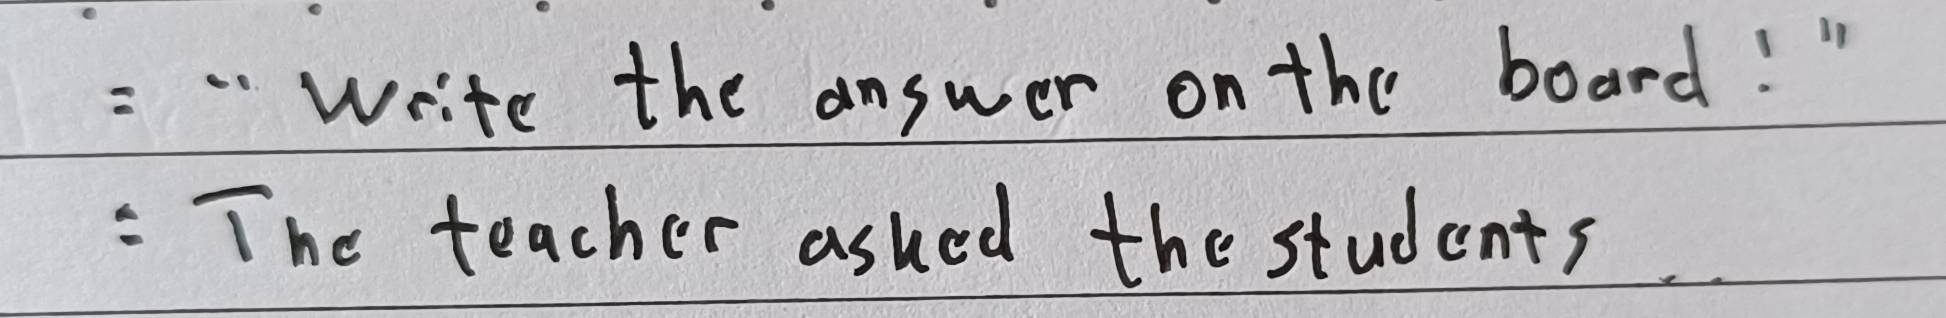 = "Write the answer on the board!"
: The teacher asked the students ...